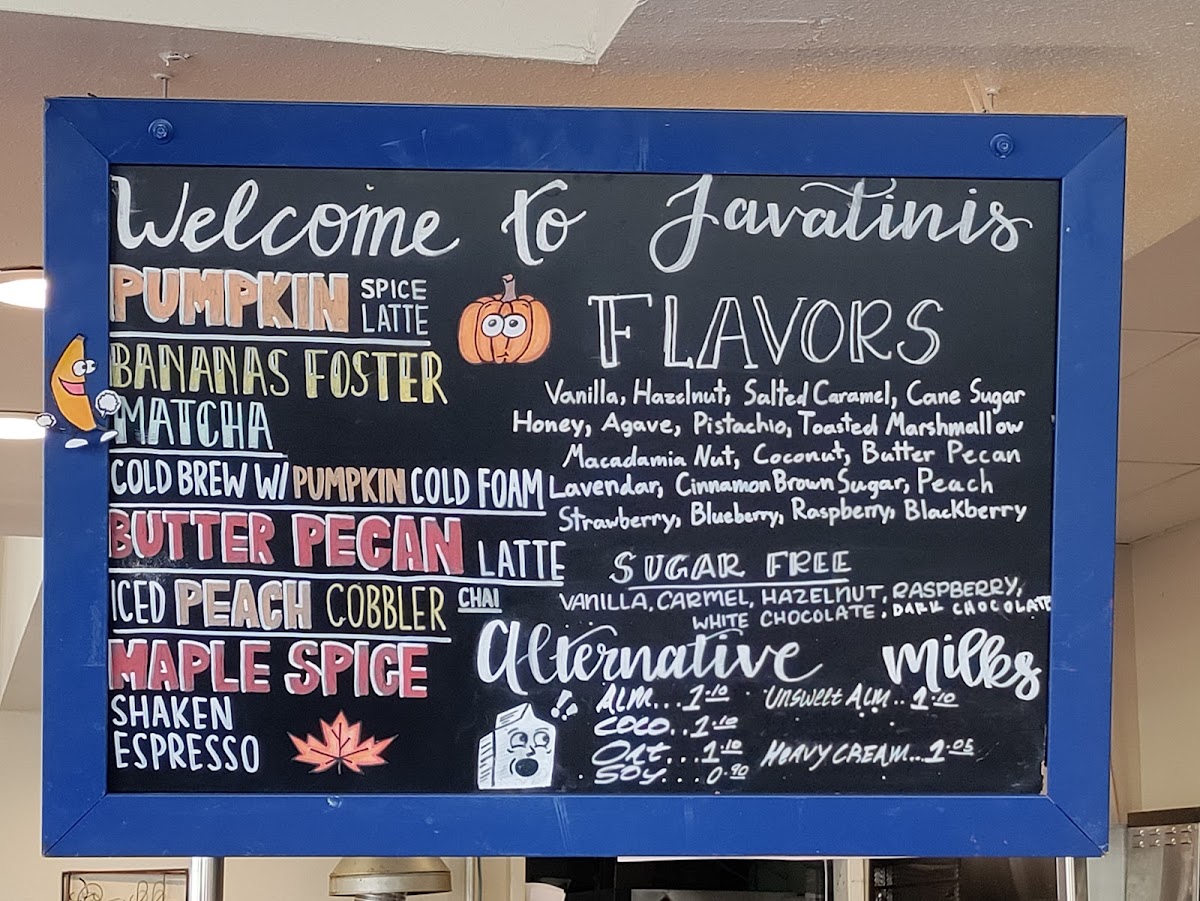 Welcome to Javatinis
PUMPKIN SPICE LATTE
BANANAS FOSTER
MATCHA
COLD BREW W/ PUMPKIN COLD FOAM
BUTTER PECAN LATTE
ICED PEACH COBBLER CHAI
MAPLE SPICE
SHAKEN
ESPRESSO
FLAVORS
Vanilla, Hazelnut, Salted Caramel, Cane Sugar
Honey, Agave, Pistachio, Toasted Marshmallow
Macadamia Nut, Coconut, Butter Pecan
Lavendar, Cinnamon Brown Sugar, Peach
Strawberry, Blueberry, Raspberry, Blackberry
SUGAR FREE
VANILLA, CARMEL, HAZELNUT, RASPBERRY,
WHITE CHOCOLATE, DARK CHOCOLATE
Alternative Milks
ALM...1.10 UNSWEET ALM..1.10
COCO..1.10
OAT...1.10 HEAVY CREAM...1.05
SOY...0.90